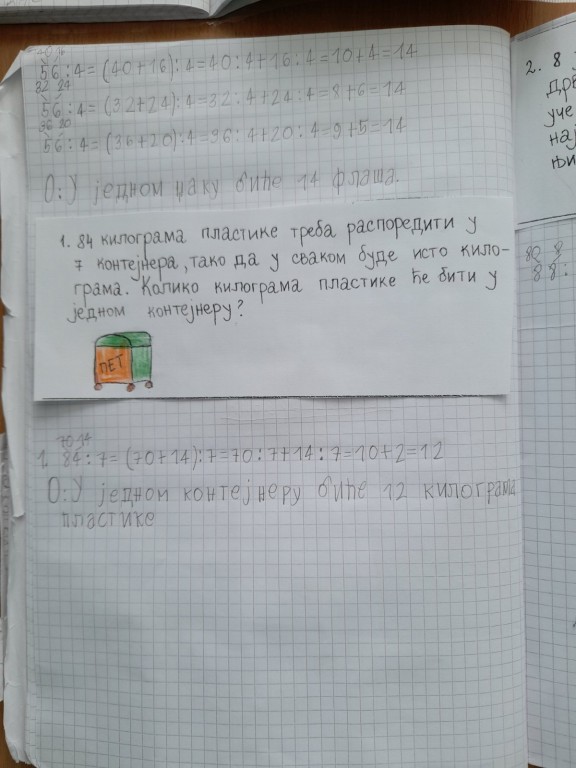 40 16
56:4=(40+16):4=40:4+16:4=10+4=14
32 24
56:4=(32+24):4=32:4+24:4=8+6=14
36 20
56:4=(36+20):4=36:4+20:4=9+5=14
О: У једном џаку биће 14 флаша.
1. 84 килограма пластике треба распоредити у
7 контејнера, тако да у сваком буде исто кило-
грама. Колико килограма пластике ће бити у
једном контејнеру?
ПЕТ
70 14
1. 84:7=(70+14):7=70:7+14:7=10+2=12
О: У једном контејнеру биће 12 килограма
пластике
2. 8
дрв
уче
нај
њи
80 8
88: